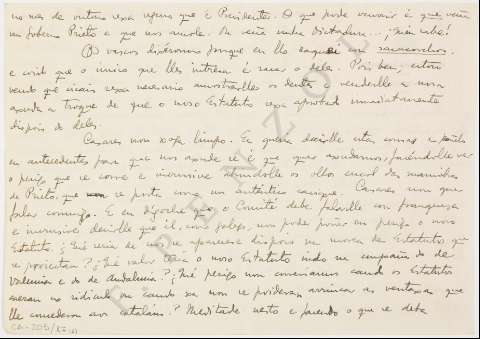 no mes de outono vexa que é Presidente. O que pode ocurrir é que veña
un Goberno Prieto e que nos amole. Ou veña unha dictadura...; ¡quén sabe!
Os vascos
e coido que o único que lles intresa é sacar o deles. Pois ben; estou
vendo que cicais sexa necesario amostralles os dentes e vendelle a nosa
axuda a troque de que o noso Estatuto sexa aprobado inmediatamente
dispois do deles.
Casares non xoga limpo. Eu quero decille estas cousas e poñelo
en antecedentes para que nos axude se é que quer axudarnos, facéndolle ver
o perigo que se corre e incrusive abríndolle os ollos encol das manobras
de Prieto, que se porta como un auténtico cacique. Casares non quer
falar comigo. E eu dígoche que o Comité debe falarlle con franqueza
e incrusive decirlle que il, como galego, non pode poñer en perigo o noso
Estatuto. ¿Qué sería de nós se aparecese dispois un marea de Estatutos que
se proieitan? ¿Qué valor tería o noso Estatuto indo na compaña do de
Valencia e do de Andalucía? ¿Qué perigo non correriamos cando os Estatutos
caeran no ridículo ou cando xa non se poideran arrincar as ventaxas que
lle concederon aos cataláns? Meditade nesto e facendo o que se deba
CA-205/12 (2)
PENZOL